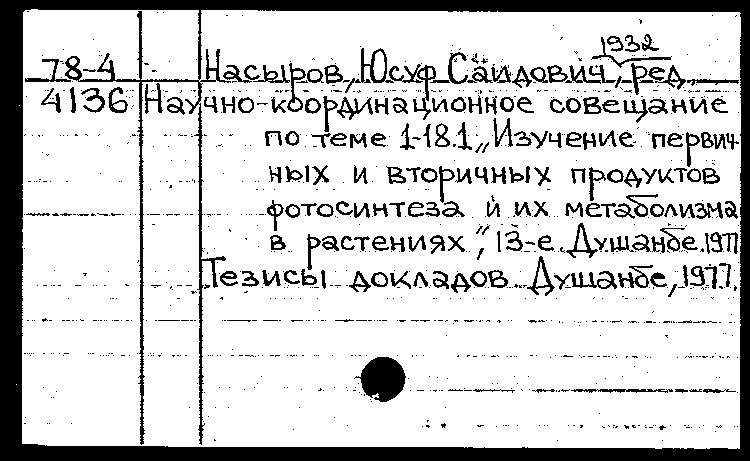 1932
78-4 Насыров, Юсуф Саидович, ред.
4136 Научно-координационное совещание
по теме 1-18.1 „Изучение первич-
ных и вторичных продуктов
фотосинтеза и их метаболизма
в растениях", 13-е. Душанбе. 1977
Тезисы докладов. Душанбе, 1977.